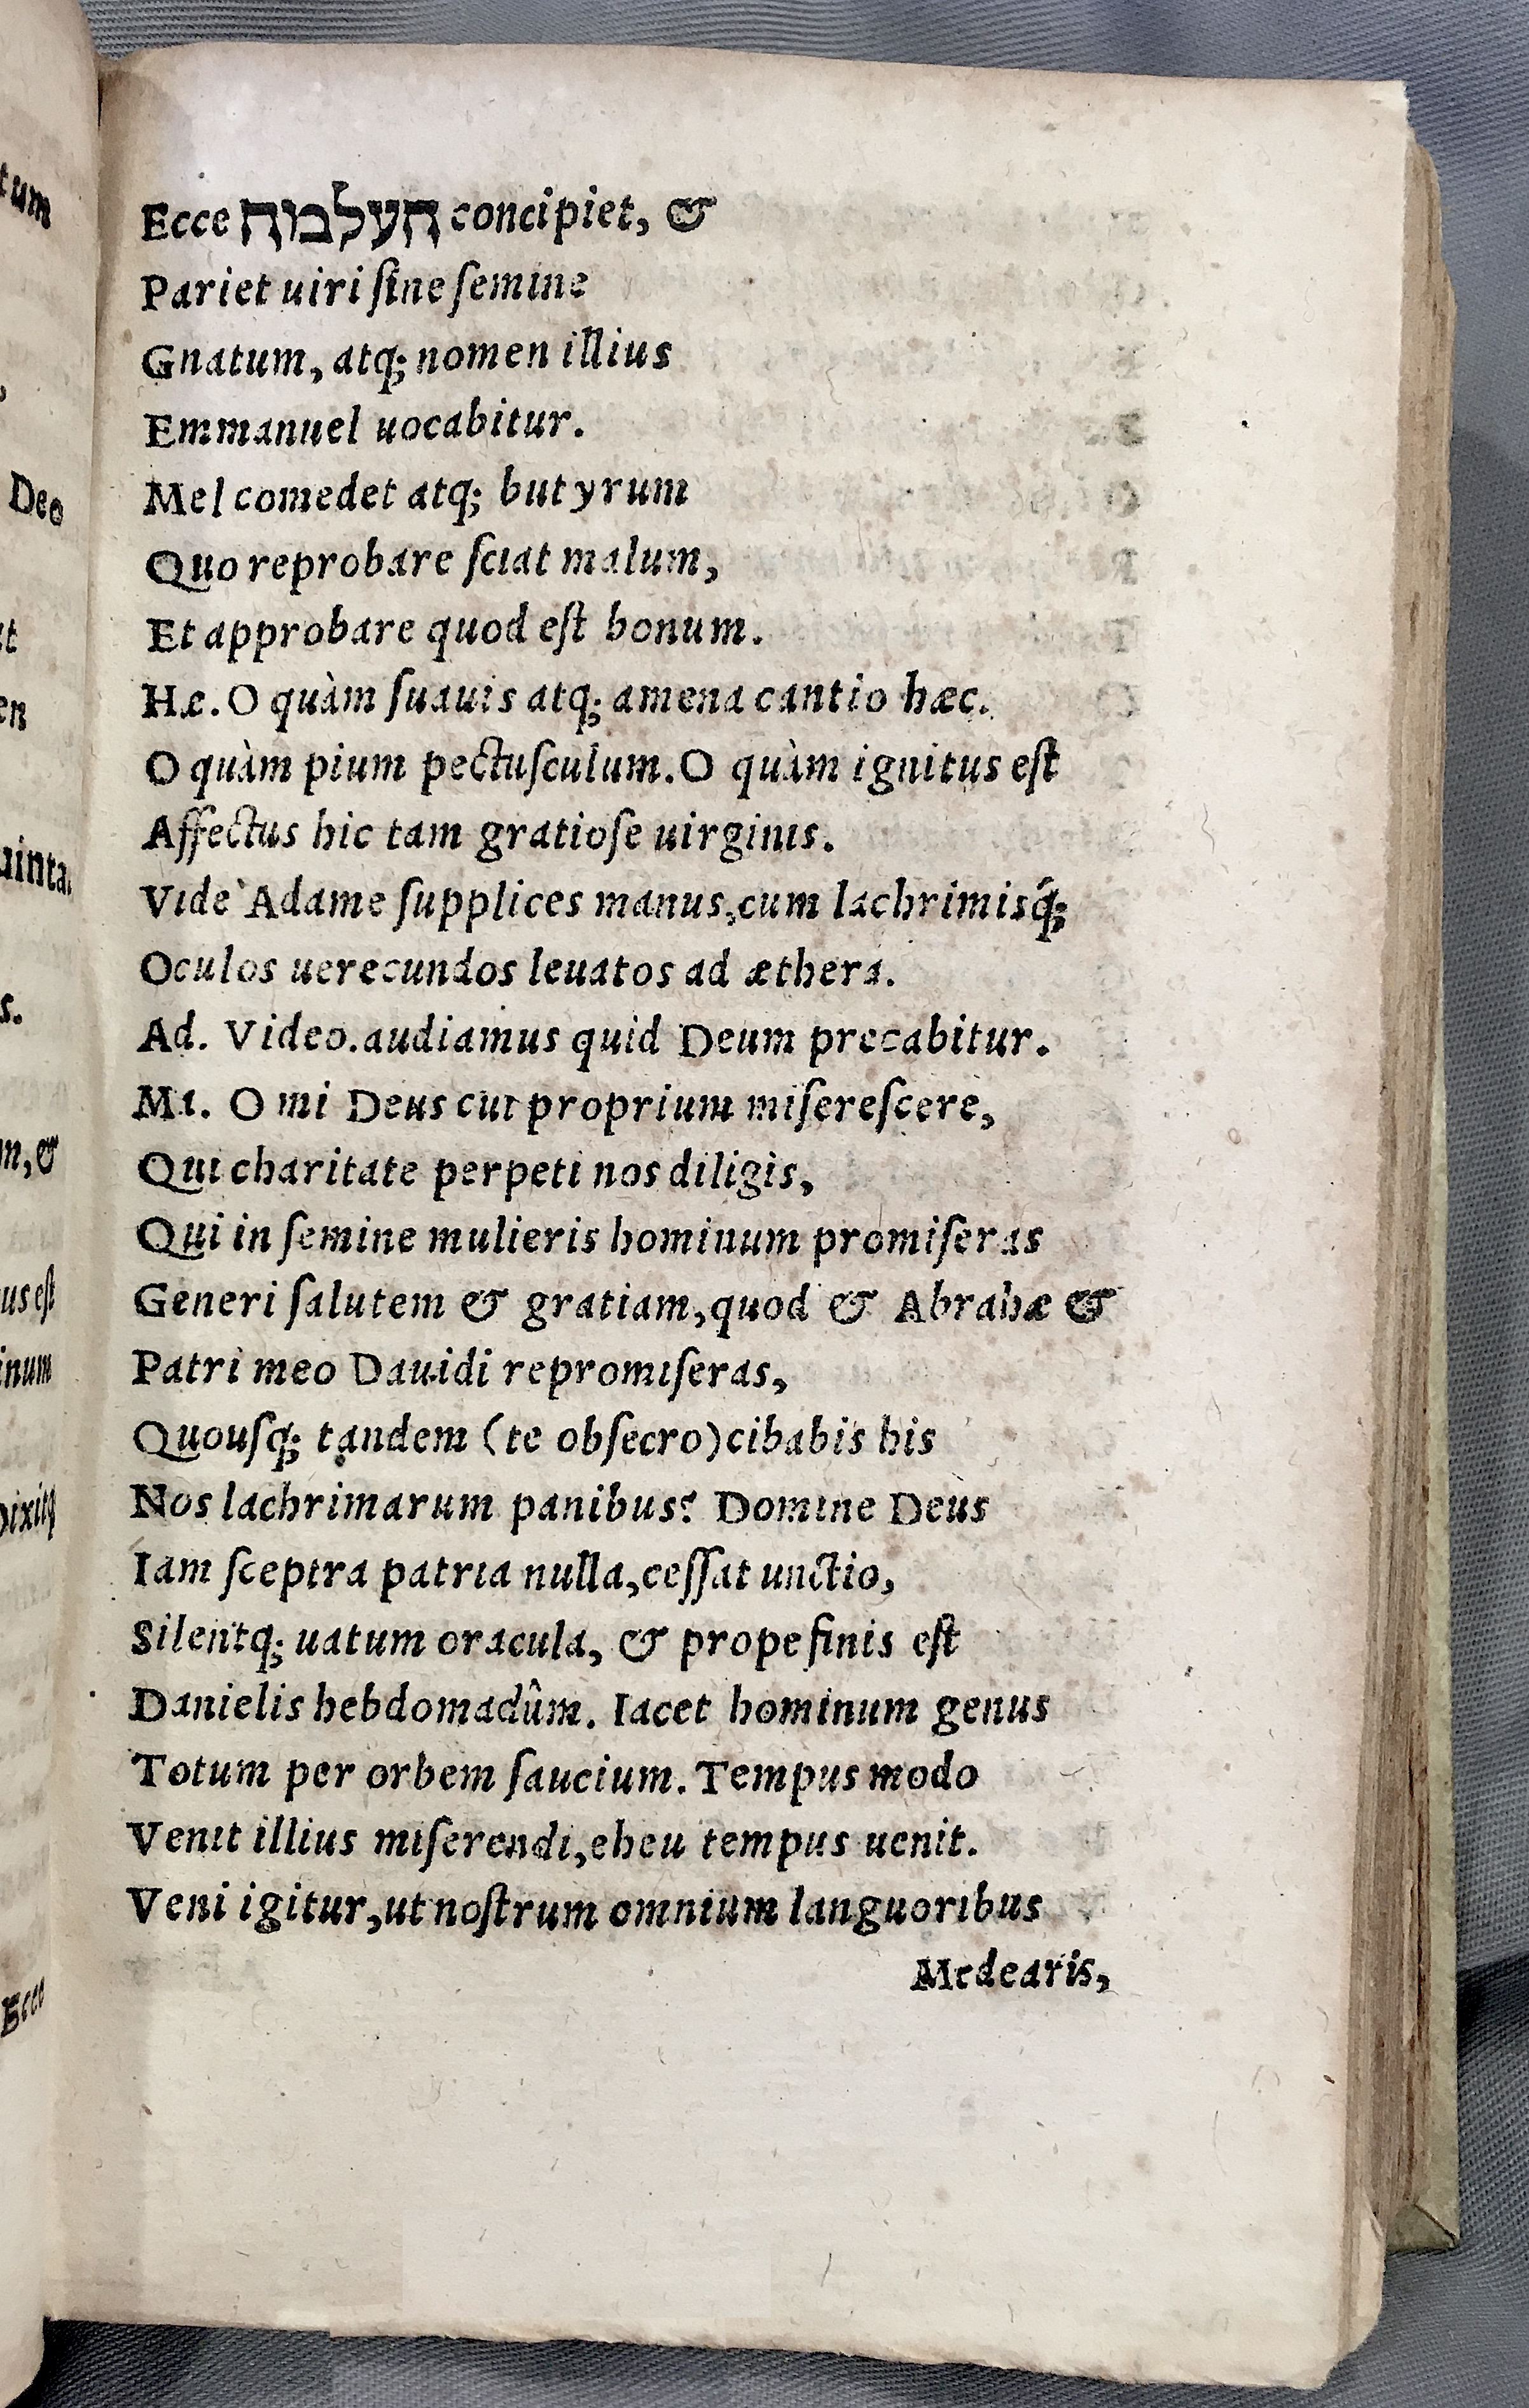 Ecce העלמה concipiet, &
Pariet uiri ſine ſemine
Gnatum, atq; nomen illius
Emmanuel uocabitur.
Mel comedet atq; butyrum
Quo reprobare ſciat malum,
Et approbare quod eſt bonum.
Hæ. O quàm ſuauis atq; amena cantio hæc.
O quàm pium pectuſculum. O quàm ignitus eſt
Affectus hic tam gratioſe uirginis.
Vide Adame ſupplices manus, cum lachrimisq́;
Oculos uerecundos leuatos ad æthera.
Ad. Video. audiamus quid Deum precabitur.
Ma. O mi Deus cui proprium miſereſcere,
Qui charitate perpeti nos diligis,
Qui in ſemine mulieris hominum promiſeras
Generi ſalutem & gratiam, quod & Abrahæ &
Patri meo Dauidi repromiſeras,
Quouſq; tandem (te obſecro) cibabis his
Nos lachrimarum panibus? Domine Deus
Iam ſceptra patria nulla, ceſſat unctio,
Silentq; uatum oracula, & prope finis eſt
Danielis hebdomadûm. Iacet hominum genus
Totum per orbem ſaucium. Tempus modo
Venit illius miſerendi, eheu tempus uenit.
Veni igitur, ut noſtrum omnium languoribus
Medearis,
tum
Deo
en
uinta.
s.
m, &
us eſt
inum
Ecce